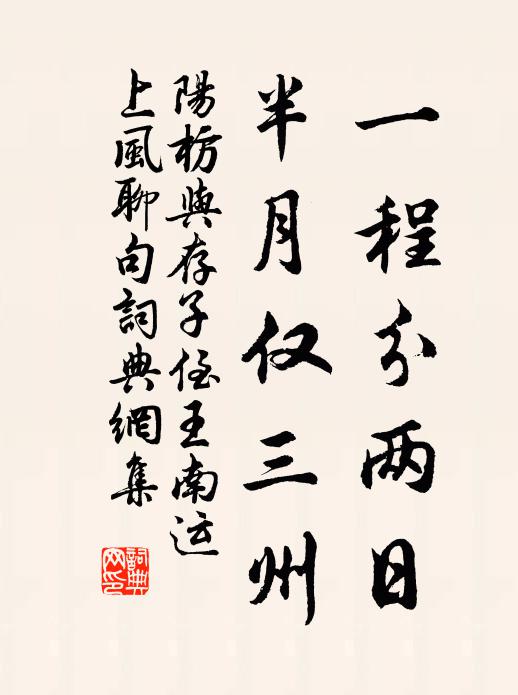 一程分两日
半月仅三州
陽枋與存子侄王南运
上風聊句詞典網集
詞典网印